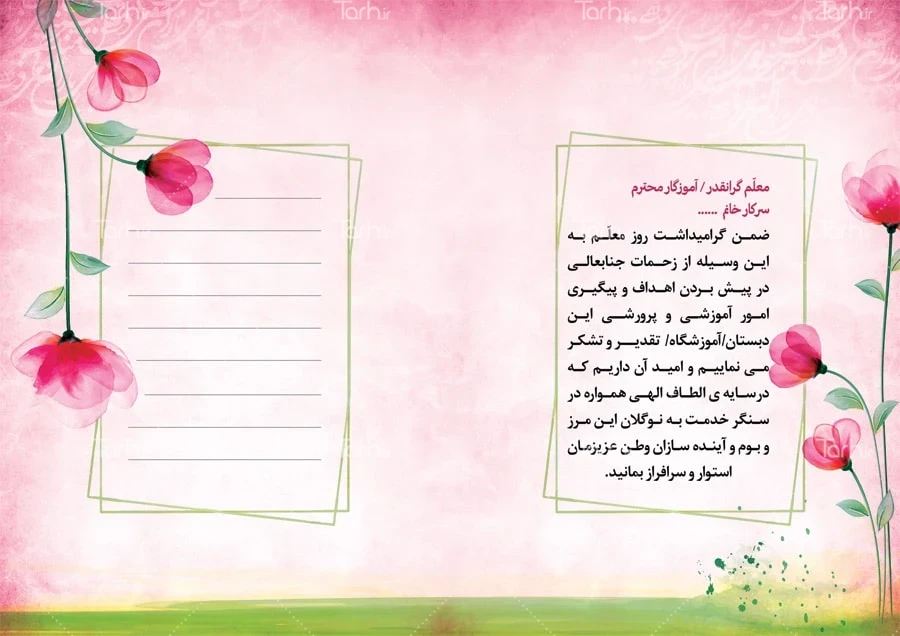 معلّم گرانقدر / آموزگار محترم
سرکار خانم ......
ضمن گرامیداشت روز معلّم به
این وسیله از زحمات جنابعالی
در پیش بردن اهداف و پیگیری
امور آموزشی و پرورشی این
دبستان/آموزشگاه/ تقدیر و تشکر
می نماییم و امید آن داریم که
درسایه ی الطاف الهی همواره در
سنگر خدمت به نوگلان این مرز
و بوم و آینده سازان وطن عزیزمان
استوار و سرافراز بمانید.
Tarh.ir